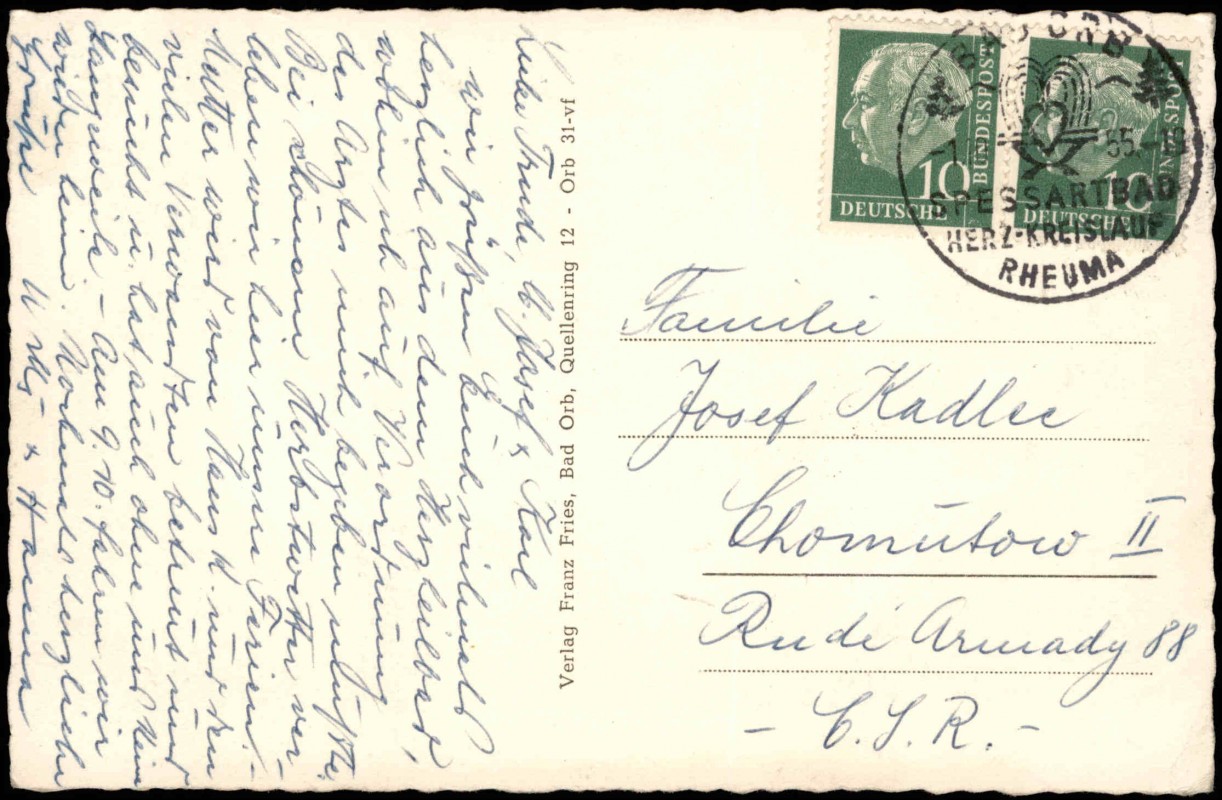 Liebe Trude, lb. Josef & Karl
wir grüßen Euch vielmals
herzlich aus dem Herzheilbad,
wohin ich auf Verordnung
des Arztes mich begeben mußte.
Bei schönem Herbstwetter ver-
leben wir hier unsere Ferien.
Mutter wird von Haus h. und den
vielen Verwandten betreut und
besucht u. hat auch ohne uns kein
Langeweile - Am 9. 10. fahren wir
wieder heim. Nochmals herzliche
Grüße Willy & Hanna
Verlag Franz Fries, Bad Orb, Quellenring 12 - Orb 31-vf
10
BUNDESPOST
DEUTSCHE
10
BUNDESPOST
DEUTSCHE
BAD ORB
55.-18
SPESSARTBAD
HERZ-KREISLAUF
RHEUMA
Familie
Josef Kadlec
Chomutow II
Rudé Armady 88
- C. S. R. -